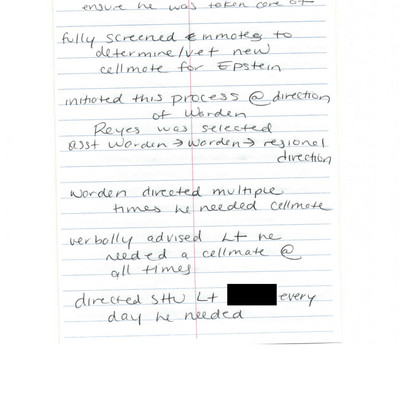 ensure he was taken care of
fully screened inmates to
determine/vet new
cellmate for Epstein
initiated this process @ direction
of Warden
Reyes was selected
asst Warden → Warden → regional
direction
Warden directed multiple
times he needed cellmate
verbally advised Lt he
needed a cellmate @
all times
directed SHU Lt every
day he needed